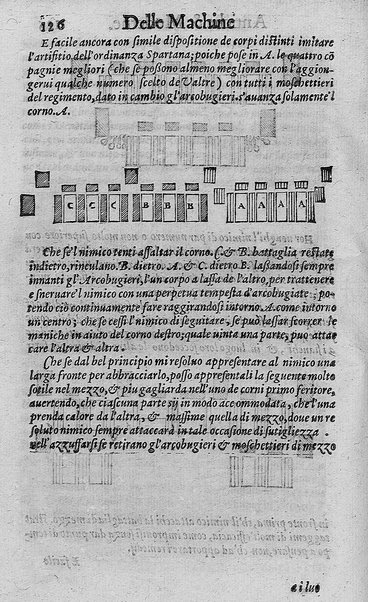 126
Delle Machine
E facile ancora con simile dispositione de corpi distinti imitare
l'artifitio dell'ordinanza Spartana; poiche pose in A. le quattro cō
pagnie megliori (che se poßono almeno megliorare con l'aggion-
gerui qualche numero scelto de l'altre) con tutti i moschettieri
del regimento, dato in cambio gl'arcobugieri. s'auanza solamente'l
corno. A.
C C C B B B A A A A
Che se'l nimico tenti assaltar il corno. C. & B. battaglia restate
indietro, rinculano. B. dietro. A. & C. dietro B. lassandosi sempre
innanti gl'Arcobugieri, l'un corpo a lassa de l'altro, per trattenere
e sneruare'l nimico con una perpetua tempesta d'arcobugiate: po-
tendo ciò continuamente fare raggirandosi intorno. A. come intorno
un centro; che se cessi'l nimico di seguitare, se può lassar scorrer le
maniche in aiuto del corno destro; quale uinte una parte, puo attac
care l'altra & altra.
Che se dal bel principio mi resoluo appresentare al nimico una
larga fronte per abbracciarlo, posso appresentali la seguente molto
sotile nel mezzo, & piu gagliarda nell'uno de corni primo feritore,
auertendo, che ciascuna parte sij in modo accommodata, che l'una
prenda calore da l'altra, & massime quella di mezzo, doue un re
soluto nimico sempre attaccerà in tale occasione di sutigliezza
nell'azzuffarsi se retirano gl'arcobugieri & moschettieri di mezzo